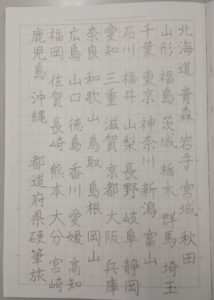 北海道 青森 岩手 宮城 秋田
山形 福島 茨城 栃木 群馬 埼玉
千葉 東京 神奈川 新潟 富山
石川 福井 山梨 長野 岐阜 静岡
愛知 三重 滋賀 京都 大阪 兵庫
奈良 和歌山 鳥取 島根 岡山
広島 山口 徳島 香川 愛媛 高知
福岡 佐賀 長崎 熊本 大分 宮崎
鹿児島 沖縄 都道府県硬筆旅